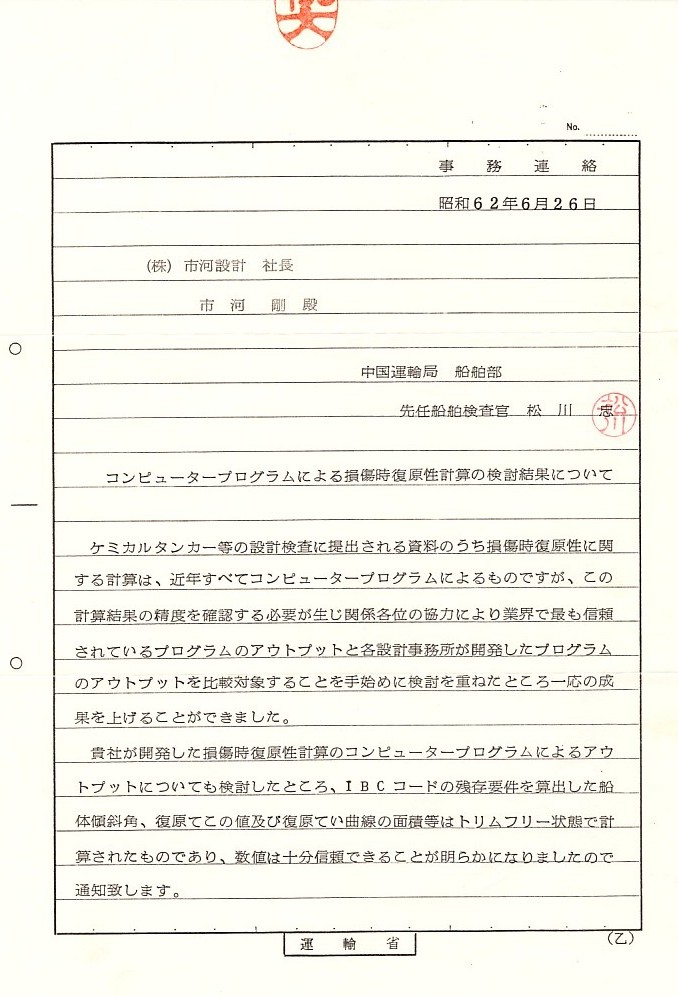 No.
事 務 連 絡
昭和62年6月26日
(株) 市河設計 社長
市 河 剛 殿
中国運輸局 船舶部
先任船舶検査官 松 川 忠
コンピュータープログラムによる損傷時復原性計算の検討結果について
ケミカルタンカー等の設計検査に提出される資料のうち損傷時復原性に関
する計算は、近年すべてコンピュータープログラムによるものですが、この
計算結果の精度を確認する必要が生じ関係各位の協力により業界で最も信頼
されているプログラムのアウトプットと各設計事務所が開発したプログラム
のアウトプットを比較対象することを手始めに検討を重ねたところ一応の成
果を上げることができました。
貴社が開発した損傷時復原性計算のコンピュータープログラムによるアウ
トプットについても検討したところ、IBCコードの残存要件を算出した船
体傾斜角、復原てこの値及び復原てい曲線の面積等はトリムフリー状態で計
算されたものであり、数値は十分信頼できることが明らかになりましたので
通知致します。
運 輸 省
(乙)